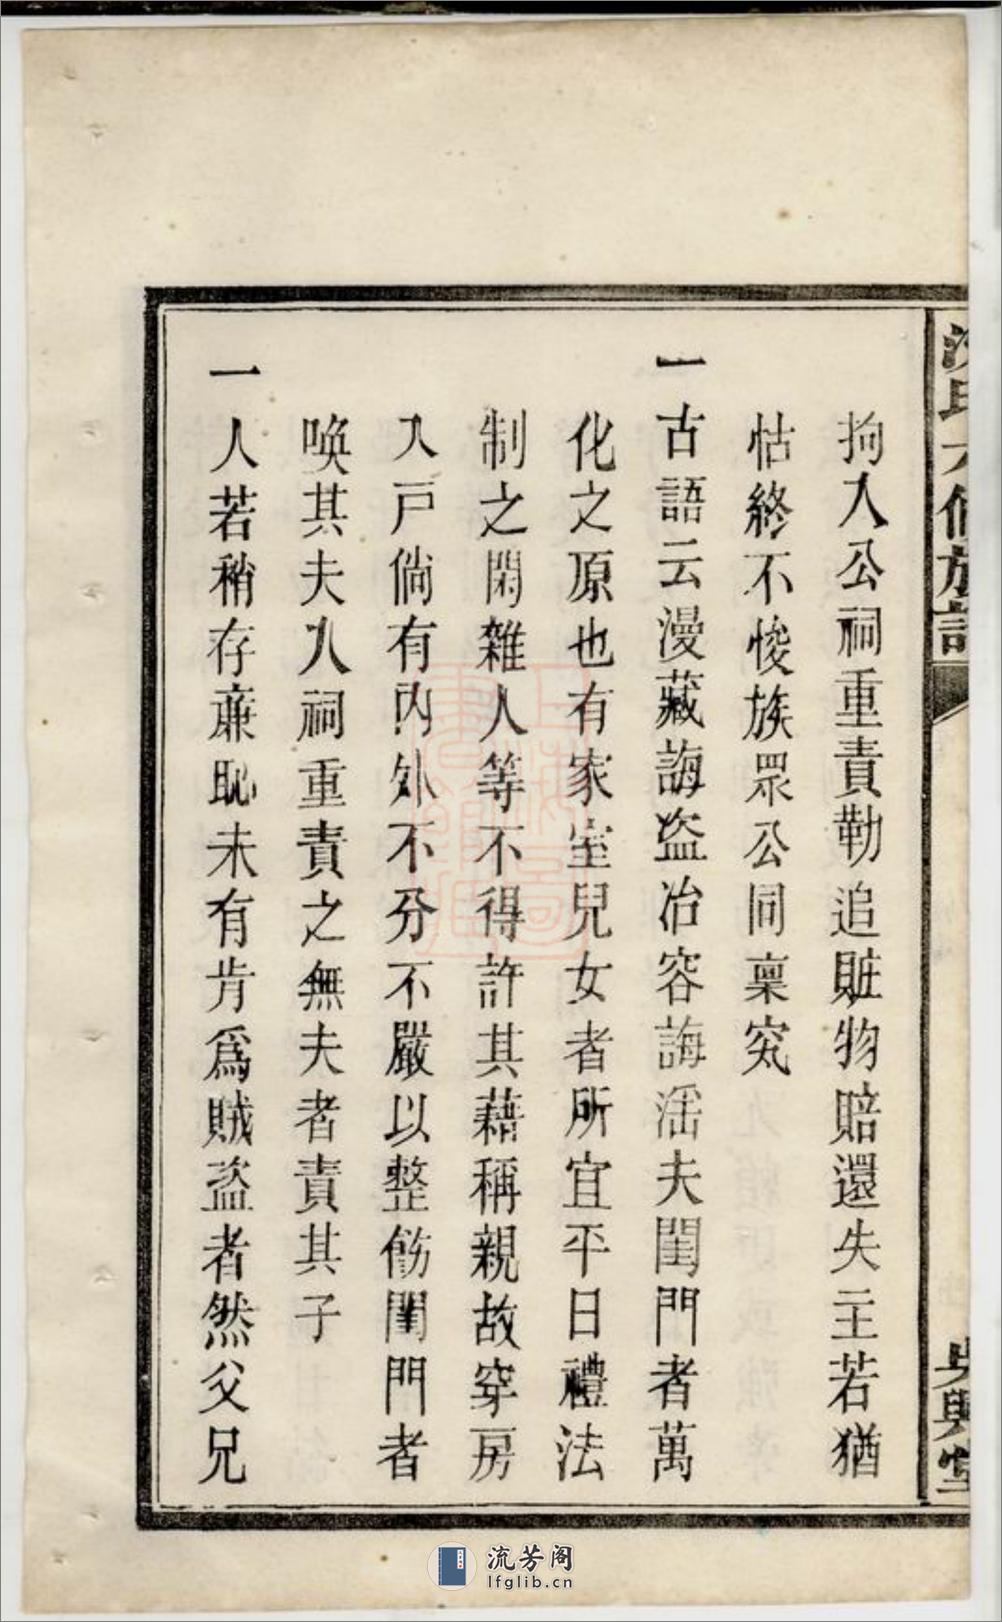 拘人公祠重責勒追賍物賠還失主若猶
怙終不悛族眾公同稟究
一古語云漫藏誨盗冶容誨滛夫閨門者萬
化之原也有家室兒女者所宜平日禮法
制之閑雜人等不得許其藉稱親故穿房
入戸倘有内外不分不嚴以整飭閨門者
喚其夫入祠重責之無夫者責其子
一人若稍存亷恥未有肯爲賊盗者然父兄
吳興堂
流芳阁
lfglib.cn